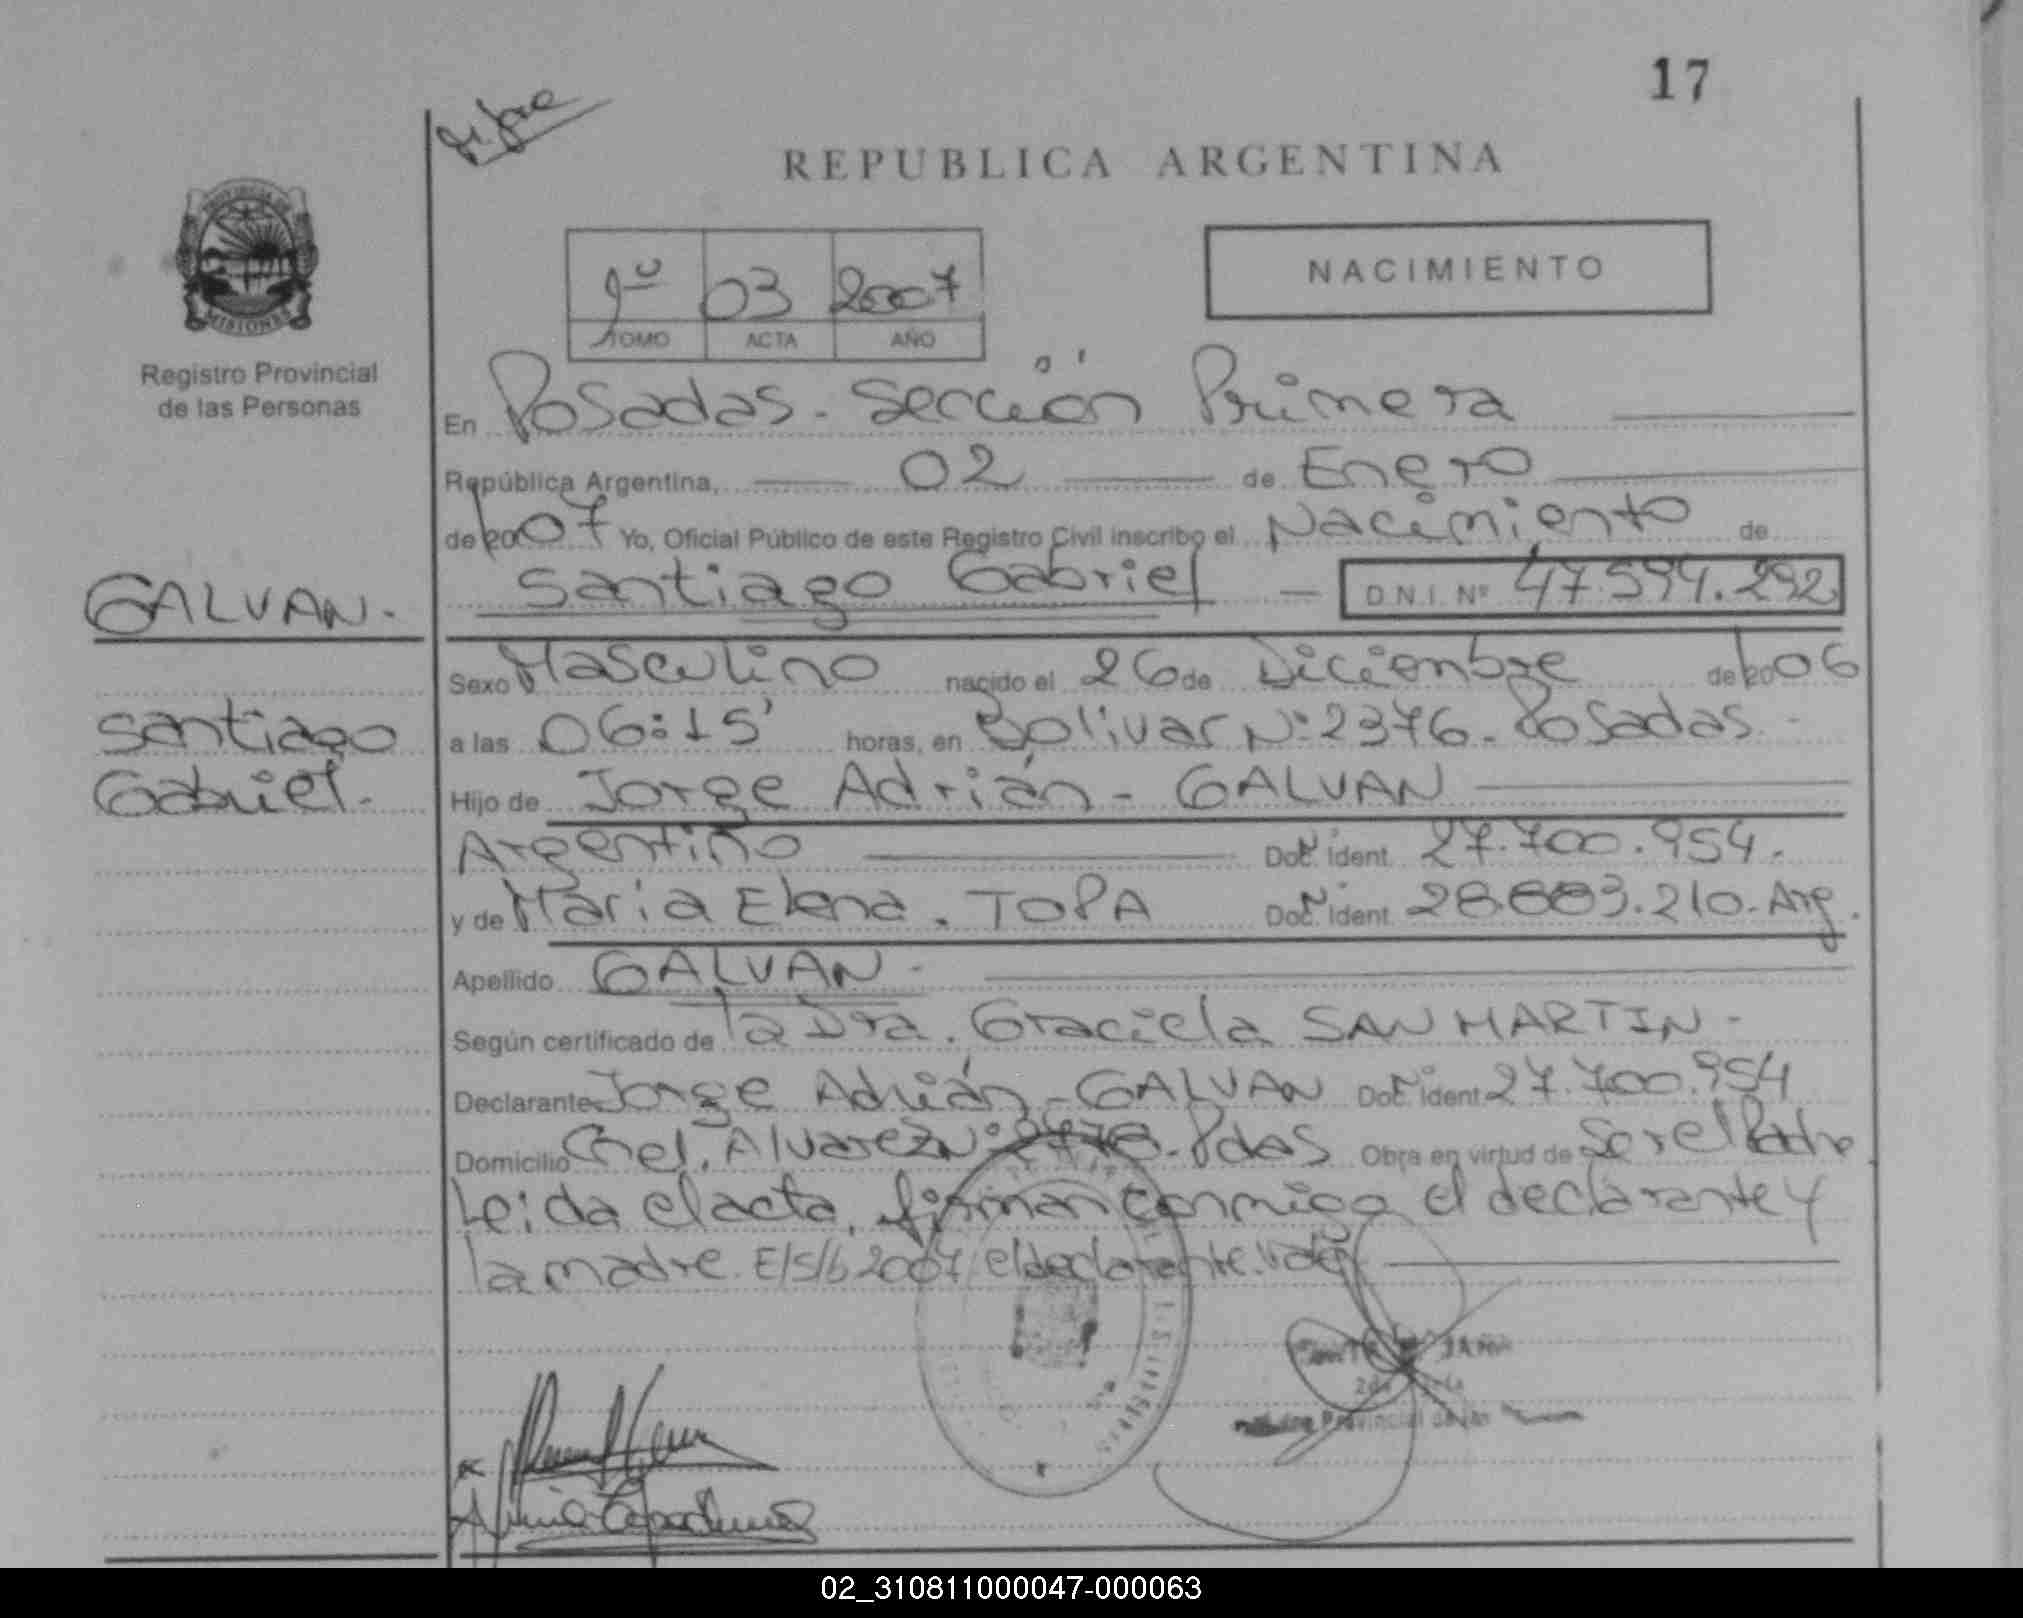 17
REPUBLICA ARGENTINA
PROVINCIA DE
MISIONES
Registro Provincial
de las Personas
1º 03 2007
TOMO ACTA AÑO
NACIMIENTO
En Posadas - Sección Primera
República Argentina, 02 de Enero
de 2007 Yo, Oficial Público de este Registro Civil inscribo el Nacimiento de
Santiago Gabriel D.N.I. Nº 47.594.292
GALVAN.
Santiago
Gabriel.
Sexo Masculino nacido el 26 de Diciembre de 2006
a las 06:15' horas, en Bolivar Nº 2376 - Posadas -
Hijo de Jorge Adrián - GALVAN
Argentino Doc. Ident. 27.700.954.
y de María Elena. TOPA Doc. Ident. 28.883.210- Arg.
Apellido GALVAN -
Según certificado de la Dra. Graciela SAN MARTIN -
Declarante Jorge Adrián - GALVAN Doc. Ident 27.700.954
Domicilio Cnel. Alvarez Nº 2478 - Pdas Obra en virtud de Ser el Padre
Leida el acta, firman conmigo el declarante y
la madre. E/S/b 2007/ el declarante. Vale
Provincial de las
02_310811000047-000063